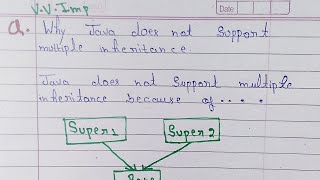 V.V.Imp
Date
Q. Why Java does not Support
multiple inheritance
Java does not Support multiple
inheritance because of ....
Super1 Super2